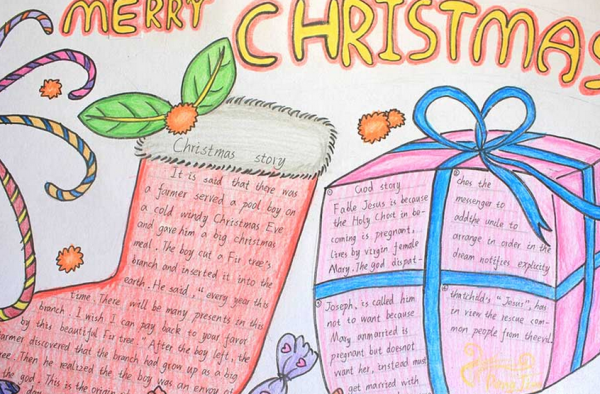 MERRY CHRISTMAS
Christmas story
It is said that there was
a farmer served a pool boy on
a cold windy Christmas Eve
and gave him a big christmas
meal. The boy cut a Fir tree's
branch and inserted it into the
earth. He said, "every year this
time There will be many presents in this
branch, I wish I can pay back to your favor
by this beautiful Fir tree." After the boy left, the
farmer discovered that the branch had grown up as a big
tree. Then he realized the the boy was an envoy of
the god. This is the origin of
day
① God story
Fable Jesus is because
the Holy Ghost in be-
coming is pregnant,
lives by virgin female
Mary. The god dispat-
② ches the
messenger to
addthe uncle to
arrange in order in the
dream notifies explicity
③ Joseph, is called him
not to want because
Mary unmarried is
pregnant but doesnot
want her, instead must
get married with
④ thatchild's "Jesus", has
in view the rescue com-
mon people from theevil.